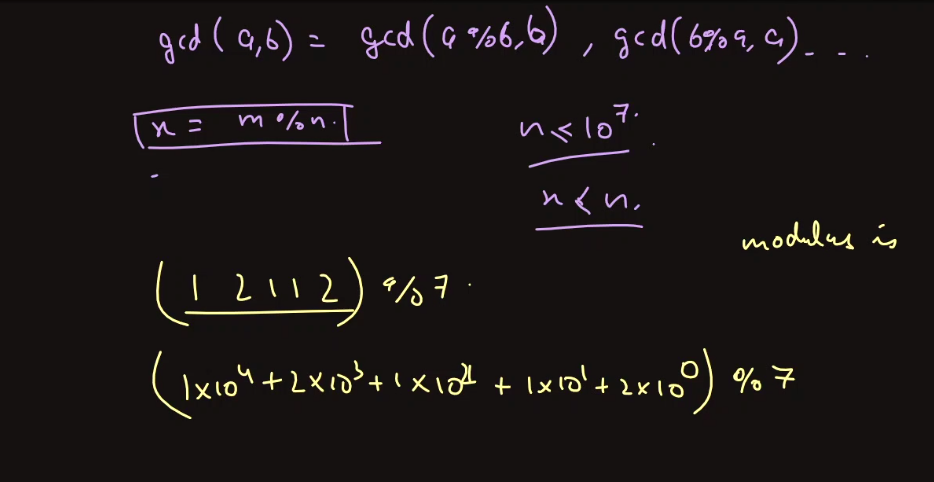 gcd(a,b) = gcd(a%b,b), gcd(b%a,a)...
x = m%n.
n ≤ 10^7.
x < n.
modulus is
(1 2 1 1 2) %7.
(1×10^4 + 2×10^3 + 1×10^2 + 1×10^1 + 2×10^0) %7